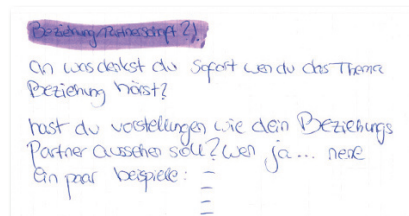 Beziehung/Partnerschaft 2).
an was denkst du sofort wen du das Thema
Beziehung hörst?
hast du vorstellungen wie dein Beziehungs
Partner aussehen soll? wen ja... nene
Ein paar beispiele: -
-
-
-